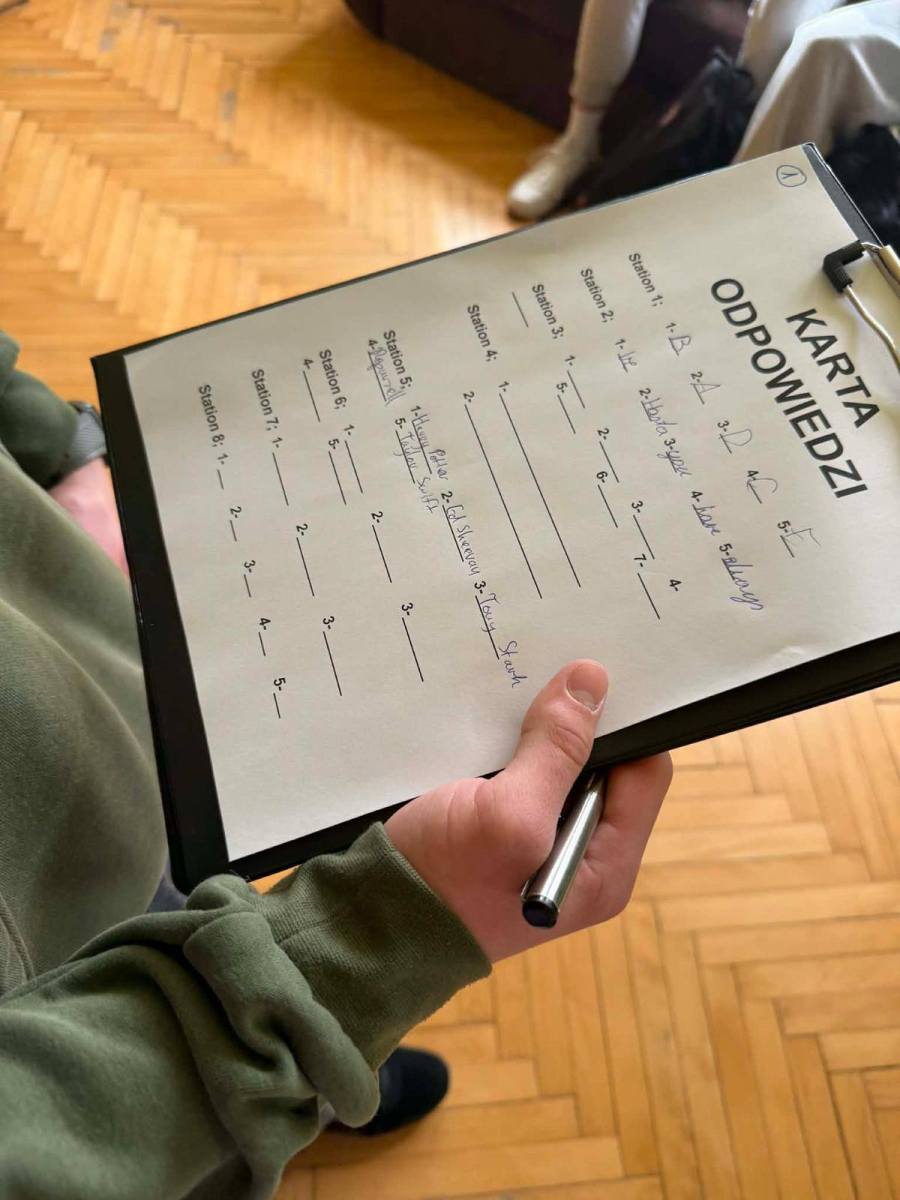 1
KARTA
ODPOWIEDZI
Station 1; 1- B 2- A 3- D 4- C 5- E
Station 2; 1- 2- 3- you 4- have 5- always
Station 3; 1- ___ 2- ___ 3- ___ 4-
___ 5- ___ 6- ___ 7- ___
Station 4; 1- ___
2- ___
Station 5; 1- Harry Potter 2- Ed Sheeran 3- Tony Stark
4- 5- Taylor Swift
Station 6; 1- ___ 2- ___ 3- ___
4- ___ 5- ___
Station 7; 1- ___ 2- ___ 3- ___
Station 8; 1- ___ 2- ___ 3- ___ 4- ___ 5- ___